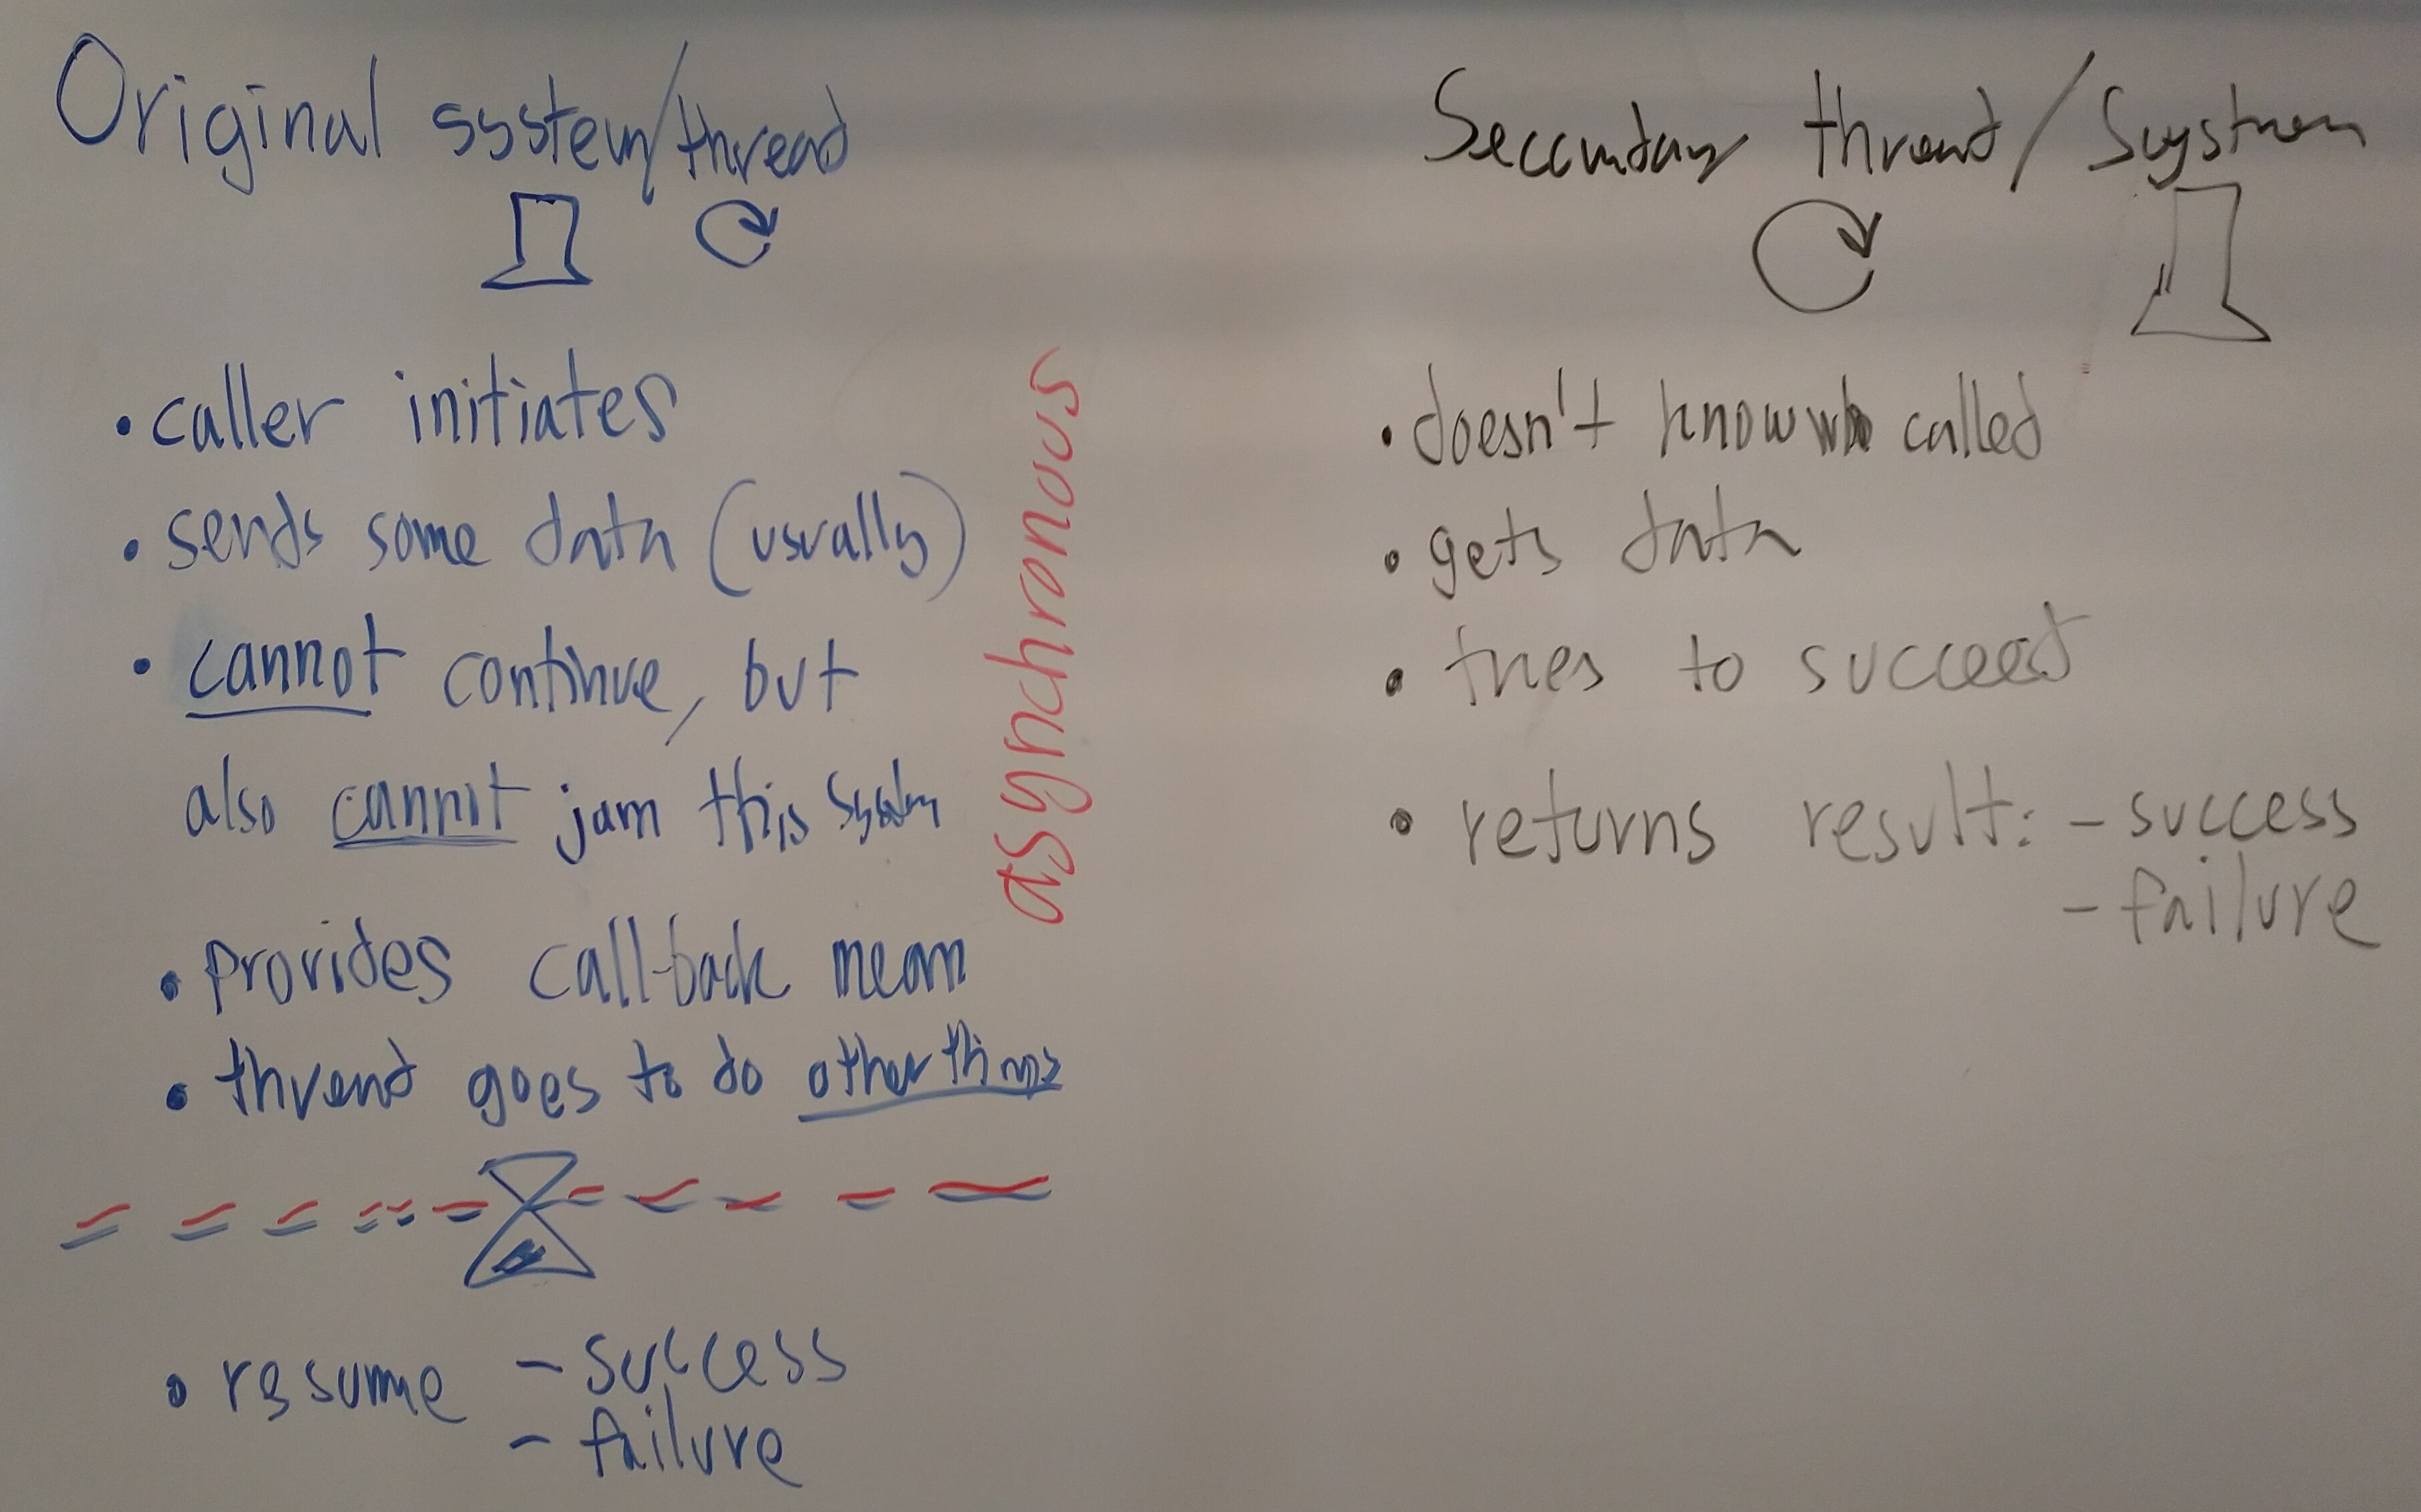 Original system/thread
• caller initiates
• sends some data (usually)
• cannot continue, but
also cannot jam this system
• provides call-back mean
• thread goes to do other things
• resume - success
- failure
asynchronous
Secondary thread / System
• doesn't know who called
• gets data
• tries to succeed
• returns result: - success
- failure